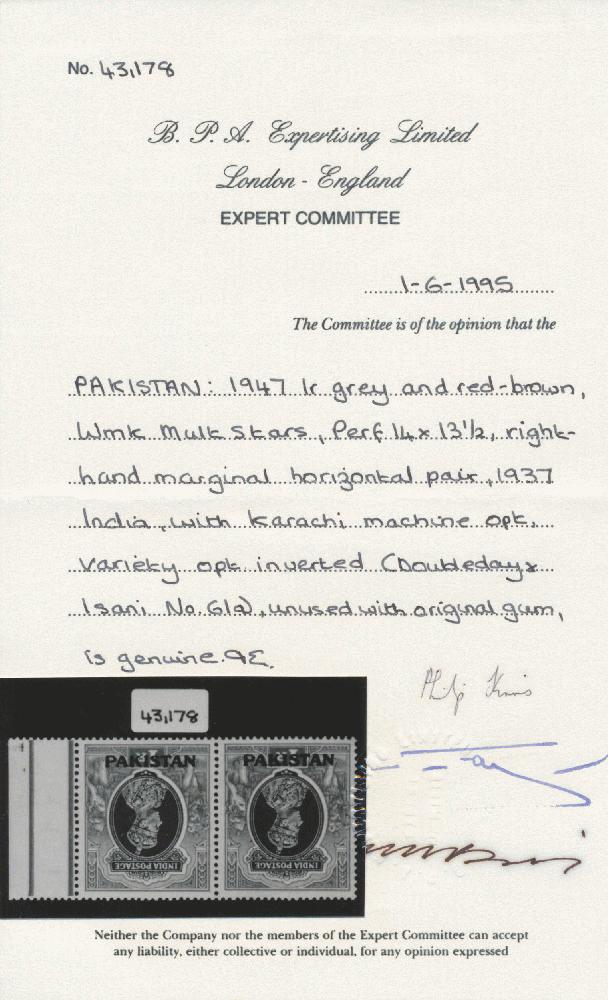 No. 43,178
B. P. A. Expertising Limited
London - England
EXPERT COMMITTEE
1-6-1995
The Committee is of the opinion that the
PAKISTAN: 1947 1r grey and red-brown,
Wmk Mult Stars, Perf 14 x 13½, right-
hand marginal horizontal pair, 1937
India, with Karachi machine opt,
variety opt inverted (Doubleday &
Isani No. 61a), unused with original gum,
is genuine.
43,178
PAKISTAN PAKISTAN
INDIA POSTAGE INDIA POSTAGE
Neither the Company nor the members of the Expert Committee can accept
any liability, either collective or individual, for any opinion expressed